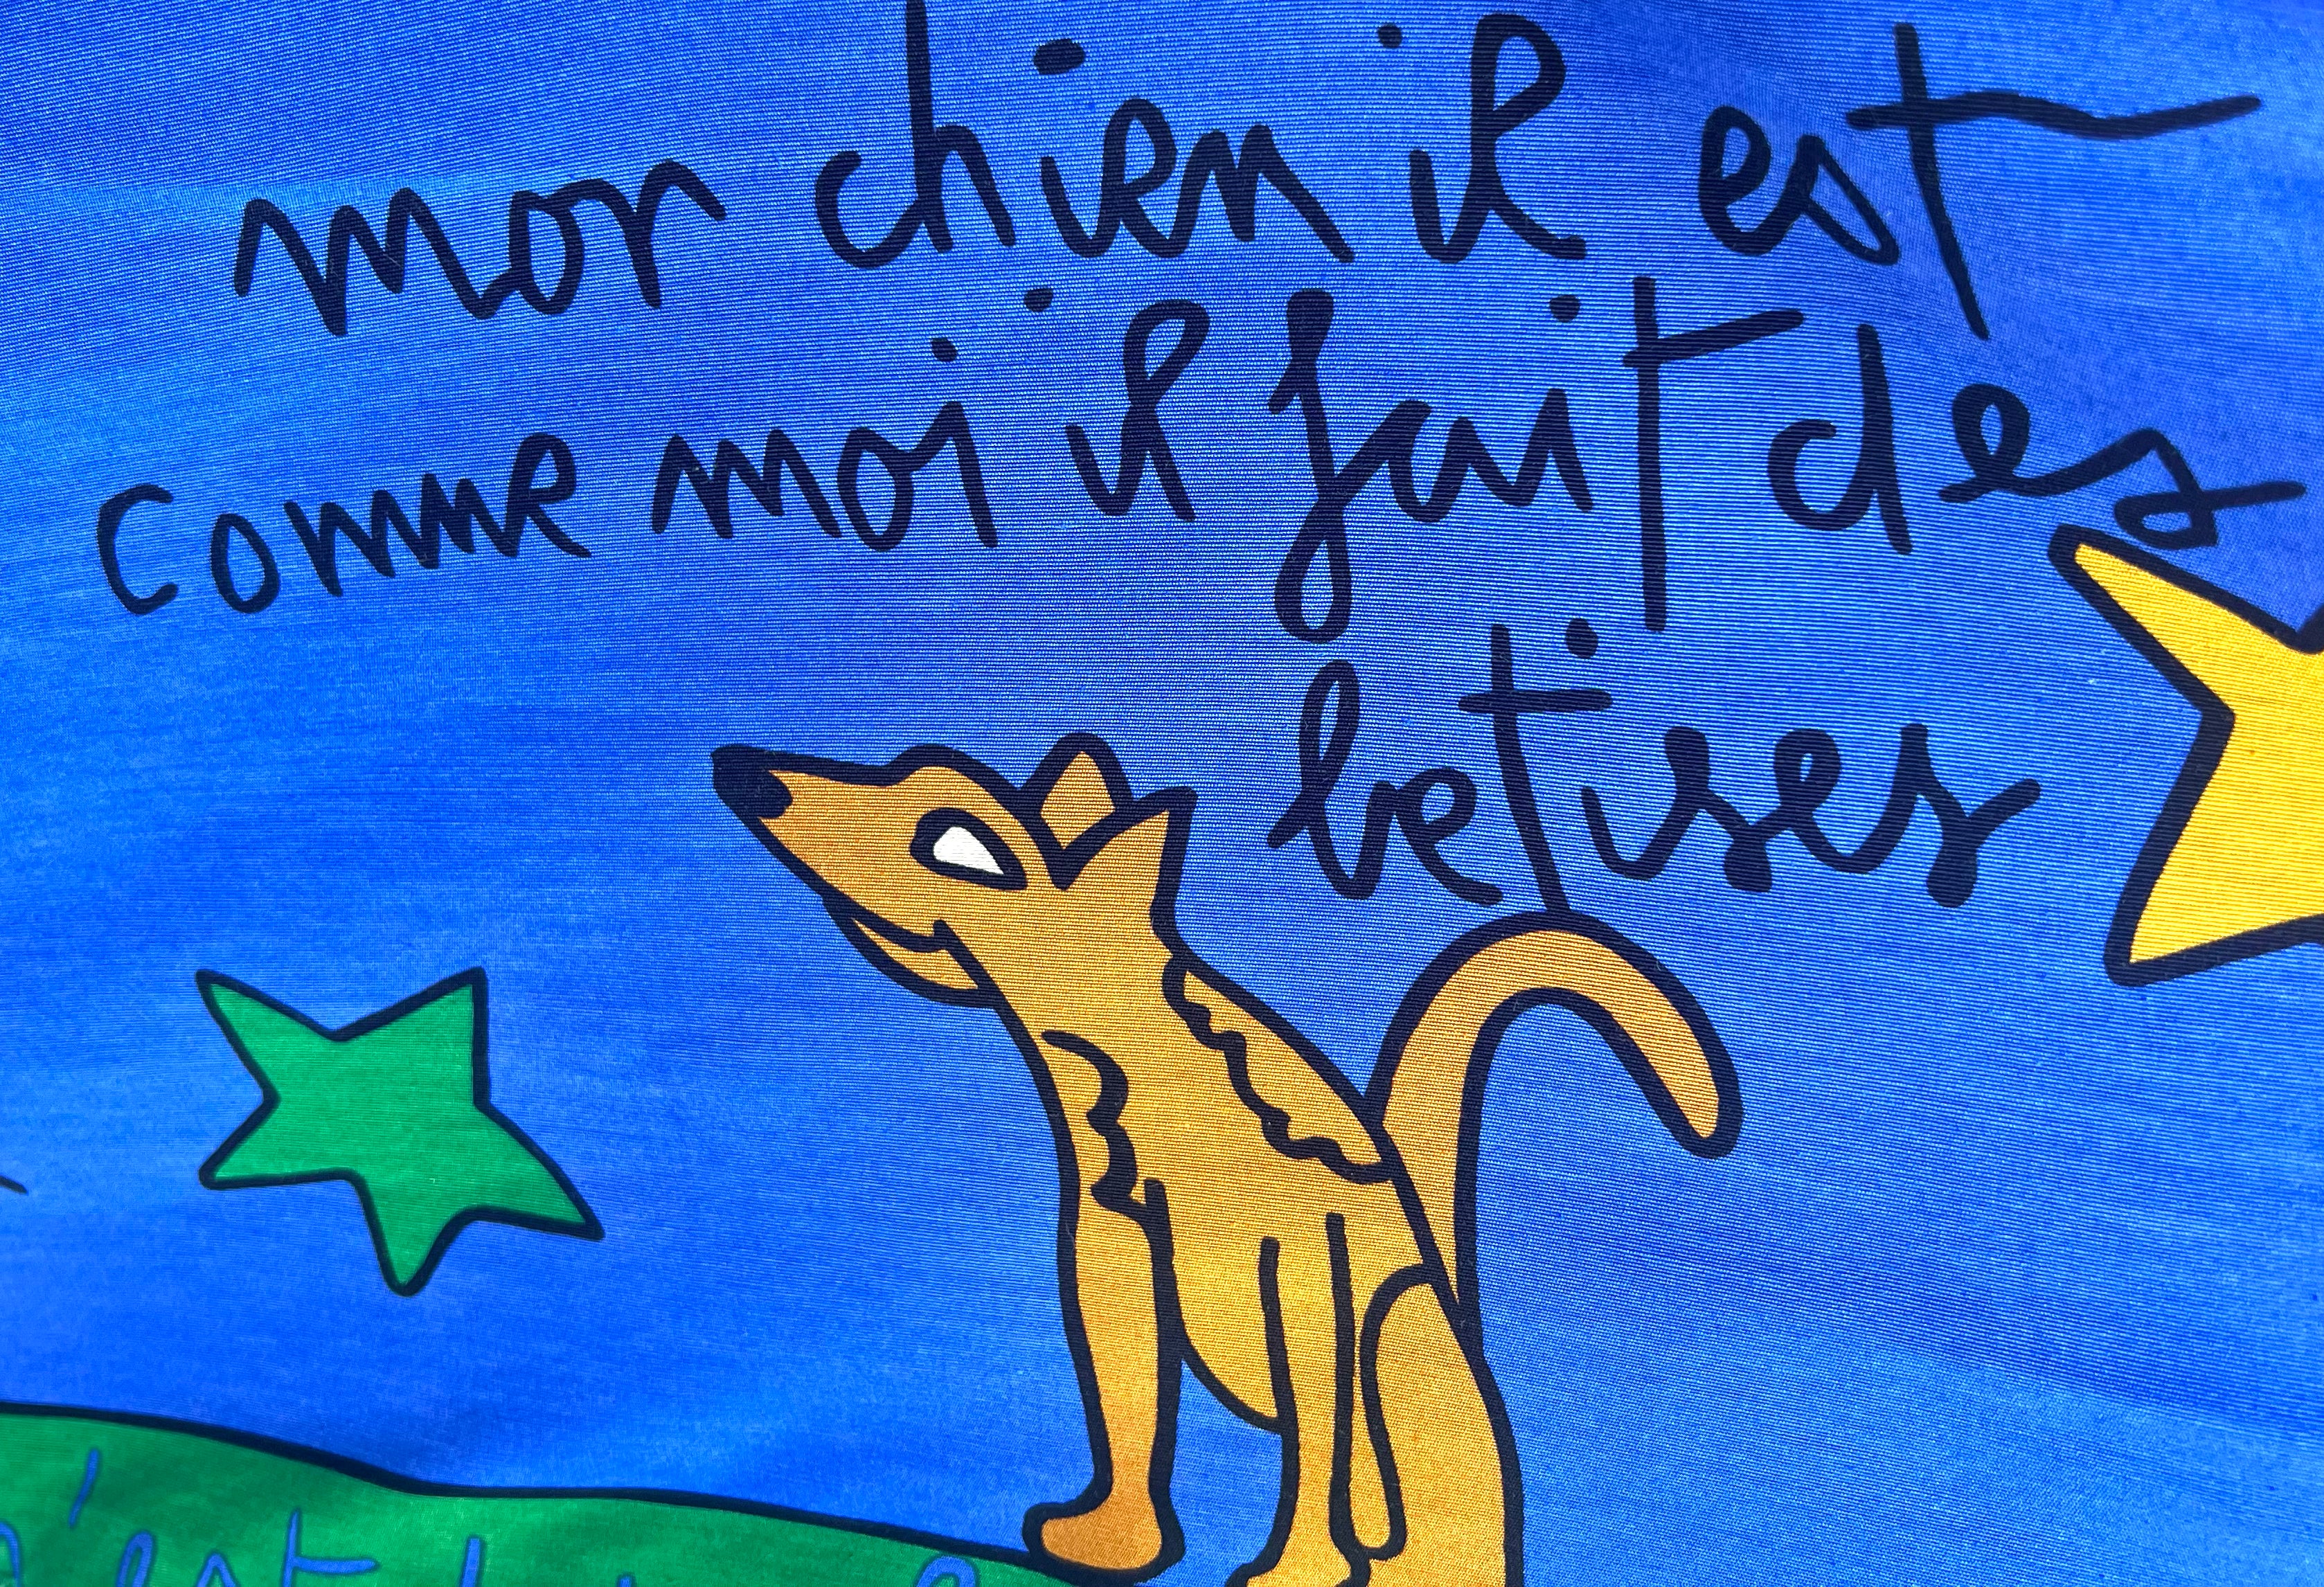 mon chien il est
comme moi il fait des
betises
c'est